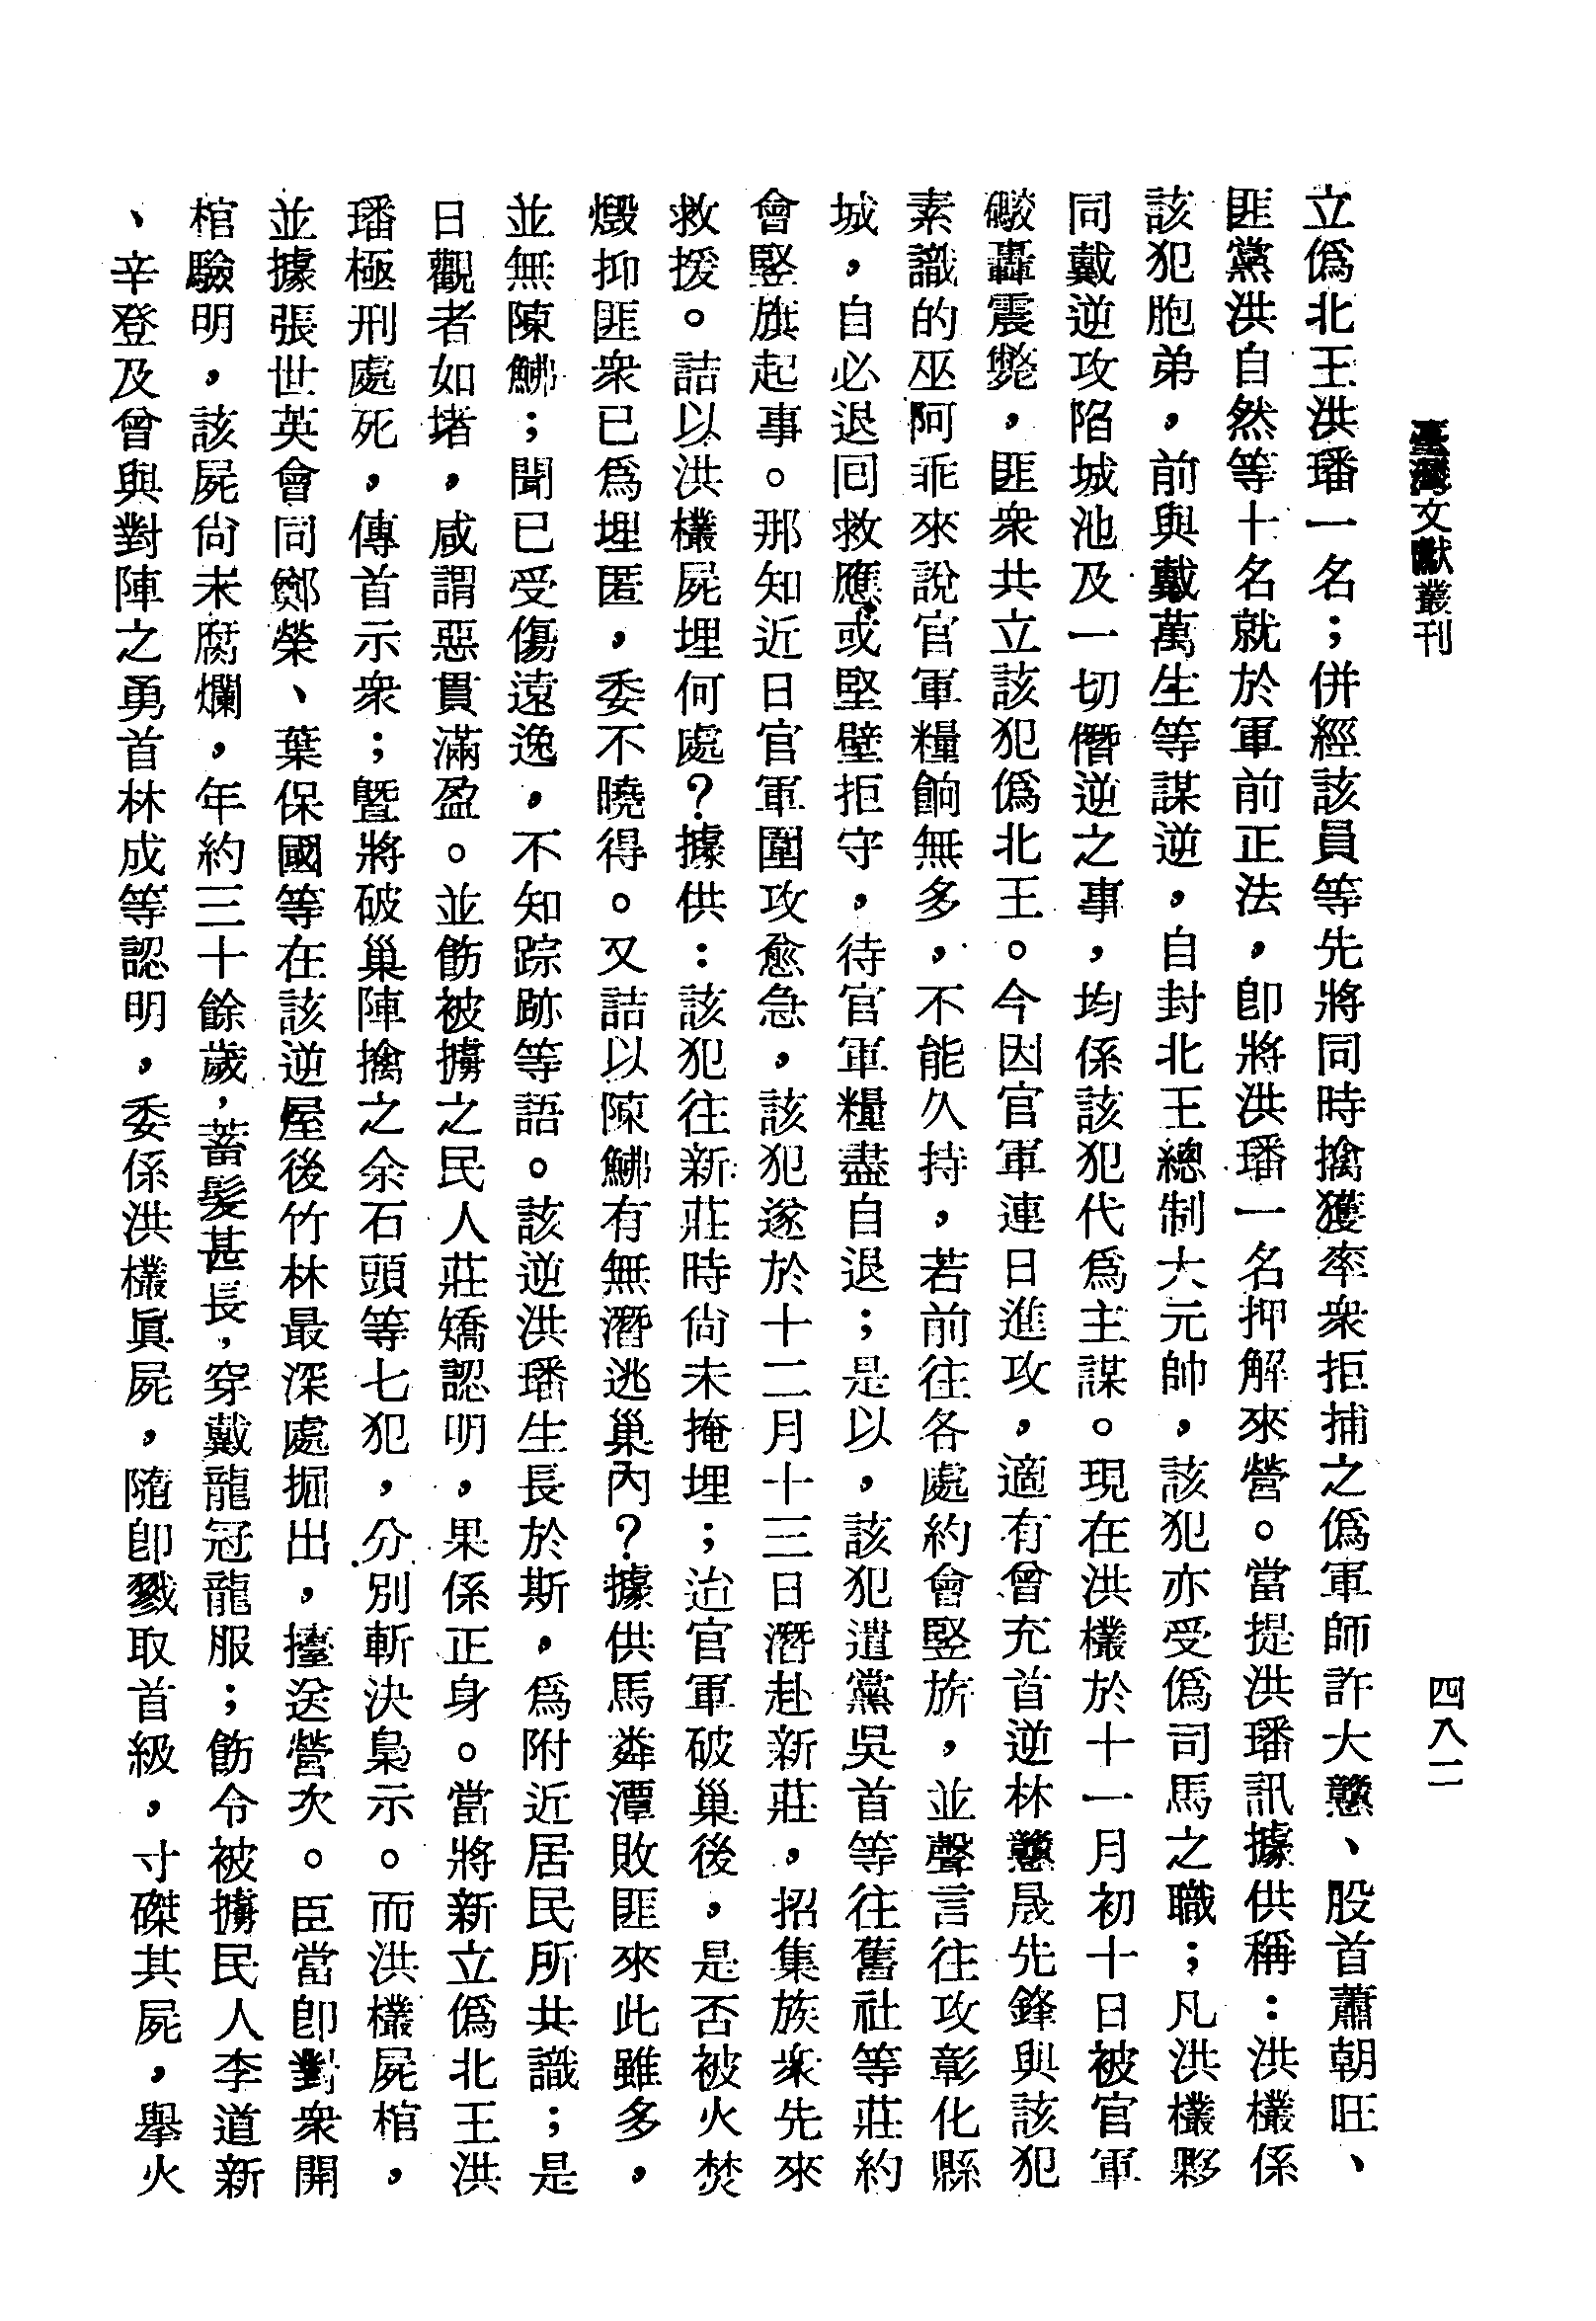 臺灣文獻叢刊
四八二
立僞北王洪璠一名；併經該員等先將同時擒獲率衆拒捕之僞軍師許大憨、股首蕭朝旺、
匪黨洪自然等十名就於軍前正法，卽將洪璠一名押解來營。當提洪璠訊據供稱：洪欉係
該犯胞弟，前與戴萬生等謀逆，自封北王總制大元帥，該犯亦受僞司馬之職；凡洪欉夥
同戴逆攻陷城池及一切僭逆之事，均係該犯代爲主謀。現在洪欉於十一月初十日被官軍
礮轟震斃，匪衆共立該犯僞北王。今因官軍連日進攻，適有曾充首逆林戇晟先鋒與該犯
素識的巫阿乖來說官軍糧餉無多，不能久持，若前往各處約會竪旂，並聲言往攻彰化縣
城，自必退回救應，或堅壁拒守，待官軍糧盡自退；是以，該犯遣黨吳首等往舊社等莊約
會竪旗起事。那知近日官軍圍攻愈急，該犯遂於十二月十三日潛赴新莊，招集族衆先來
救援。詰以洪欉屍埋何處？據供：該犯往新莊時尙未掩埋；迨官軍破巢後，是否被火焚
燬抑匪衆已爲埋匿，委不曉得。又詰以陳鯡有無潛逃巢內？據供馬粦潭敗匪來此雖多，
並無陳鯡；聞已受傷遠逸，不知踪跡等語。該逆洪璠生長於斯，爲附近居民所共識；是
日觀者如堵，咸謂惡貫滿盈。並飭被擄之民人莊矯認明，果係正身。當將新立僞北王洪
璠極刑處死，傳首示衆；曁將破巢陣擒之余石頭等七犯，分別斬決梟示。而洪欉屍棺，
並據張世英會同鄭榮、葉保國等在該逆屋後竹林最深處掘出，擡送營次。臣當卽對衆開
棺驗明，該屍尙未腐爛，年約三十餘歲，蓄髮甚長，穿戴龍冠龍服；飭令被擄民人李道新
、辛登及曾與對陣之勇首林成等認明，委係洪欉眞屍，隨卽戮取首級，寸磔其屍，擧火